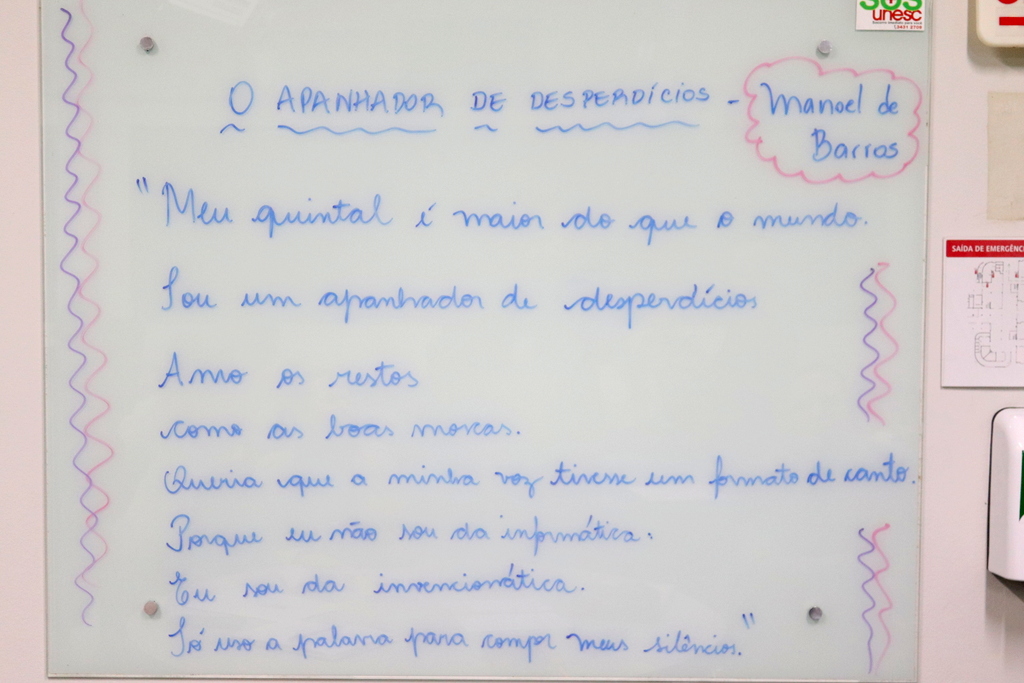 SOS
unesc
O APANHADOR DE DESPERDÍCIOS - Manoel de Barros
"Meu quintal é maior do que o mundo.
Sou um apanhador de desperdícios
Amo os restos
como as boas moscas.
Queria que a minha voz tivesse um formato de canto.
Porque eu não sou da informática.
Eu sou da invencionática.
Só uso a palavra para compor meus silêncios."
SAÍDA DE EMERGÊNC